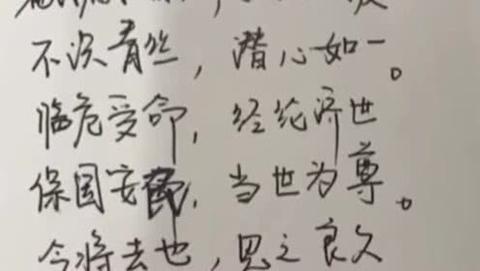 不染青丝，潜心如一。
临危受命，经纶济世
保国安，当世为尊。
今将去也，思之良久